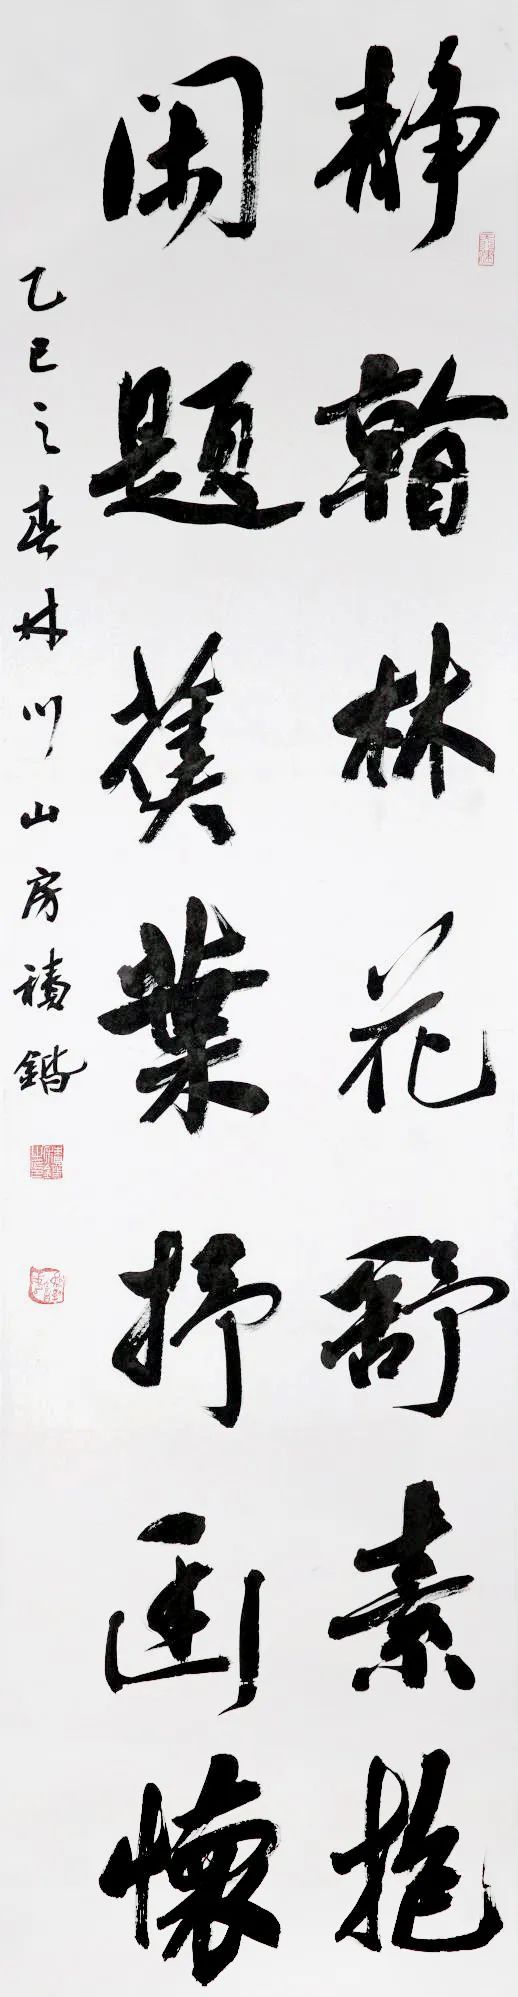 静翰林花舒素抱
閑題蕉葉抒画懷
乙巳之春林川山房積鍇